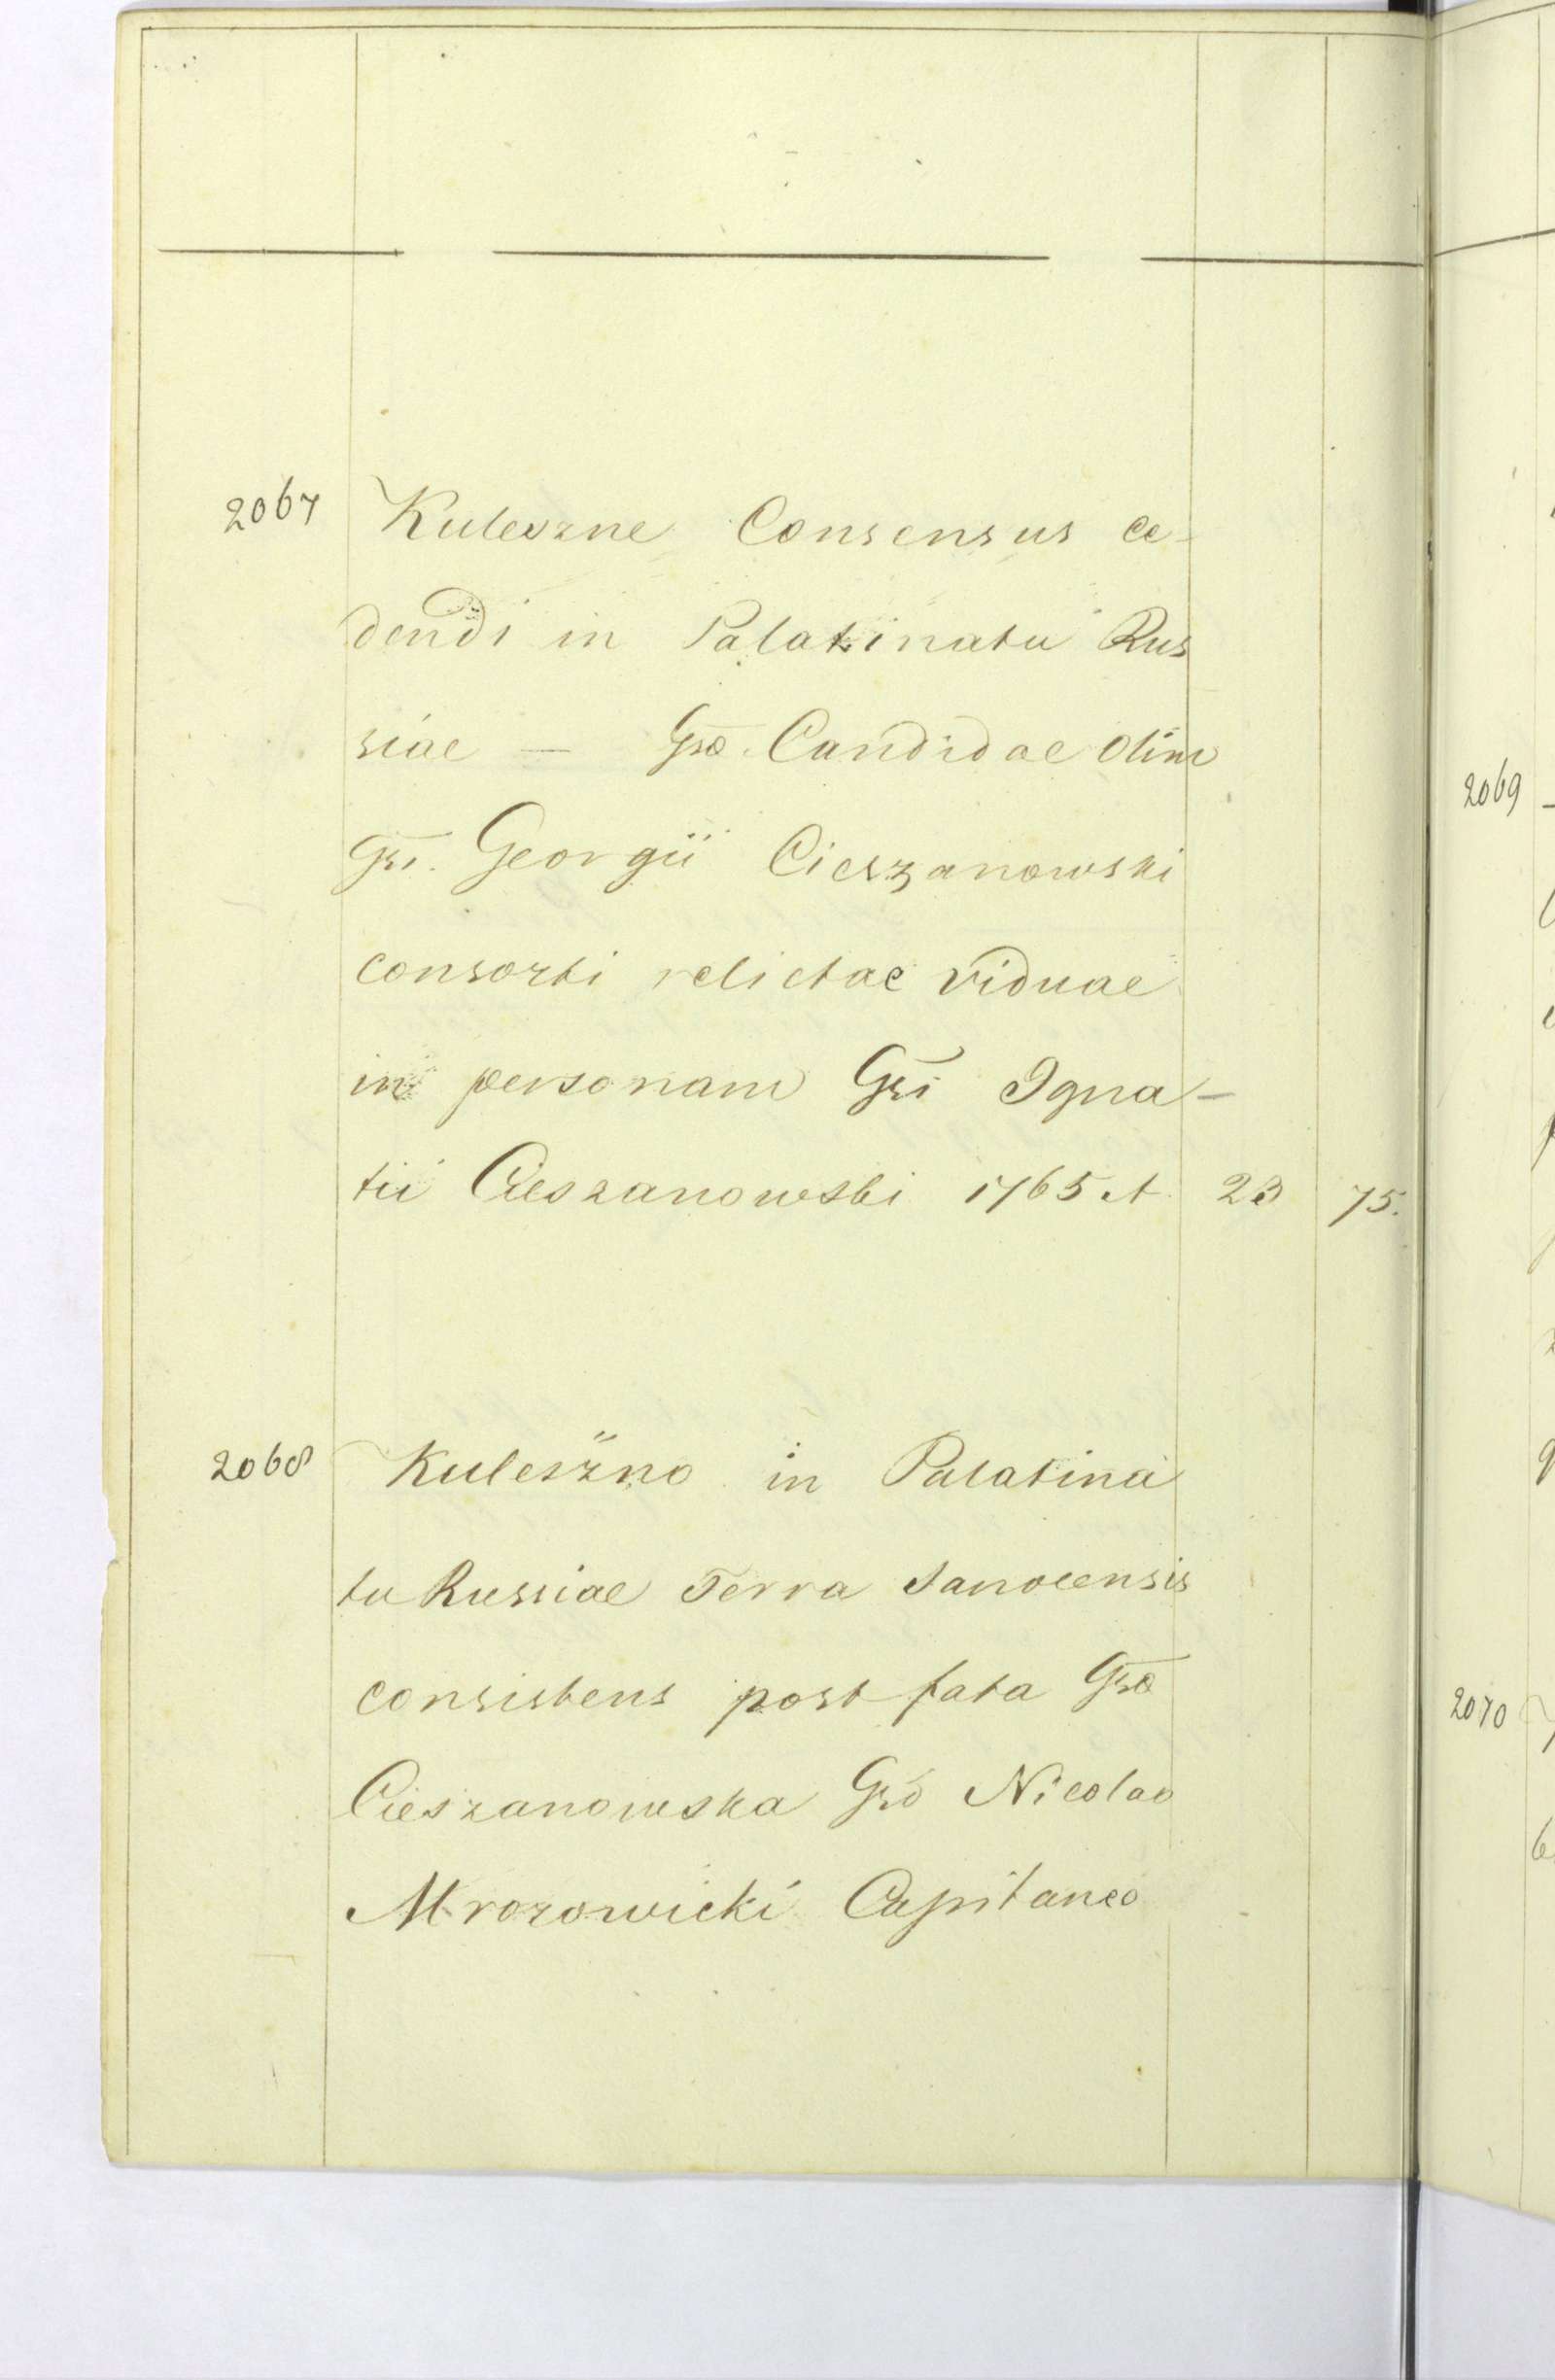 2067 Kuleszne Consensus ce-
dendi in Palatinatu Rus
siae — Gsae Candidae olim
Gsi. Georgii Cieszanowski
consorti relictae viduae
in personam Gsi Igna-
tii Cieszanowski 1765 A 23 75.
2068 Kuleszno in Palatina
tu Russiae Terra Sanocensis
consistens post fata Gsae
Cieszanowska Gso Nicolao
Mrozowicki Capitaneo
2069
2070